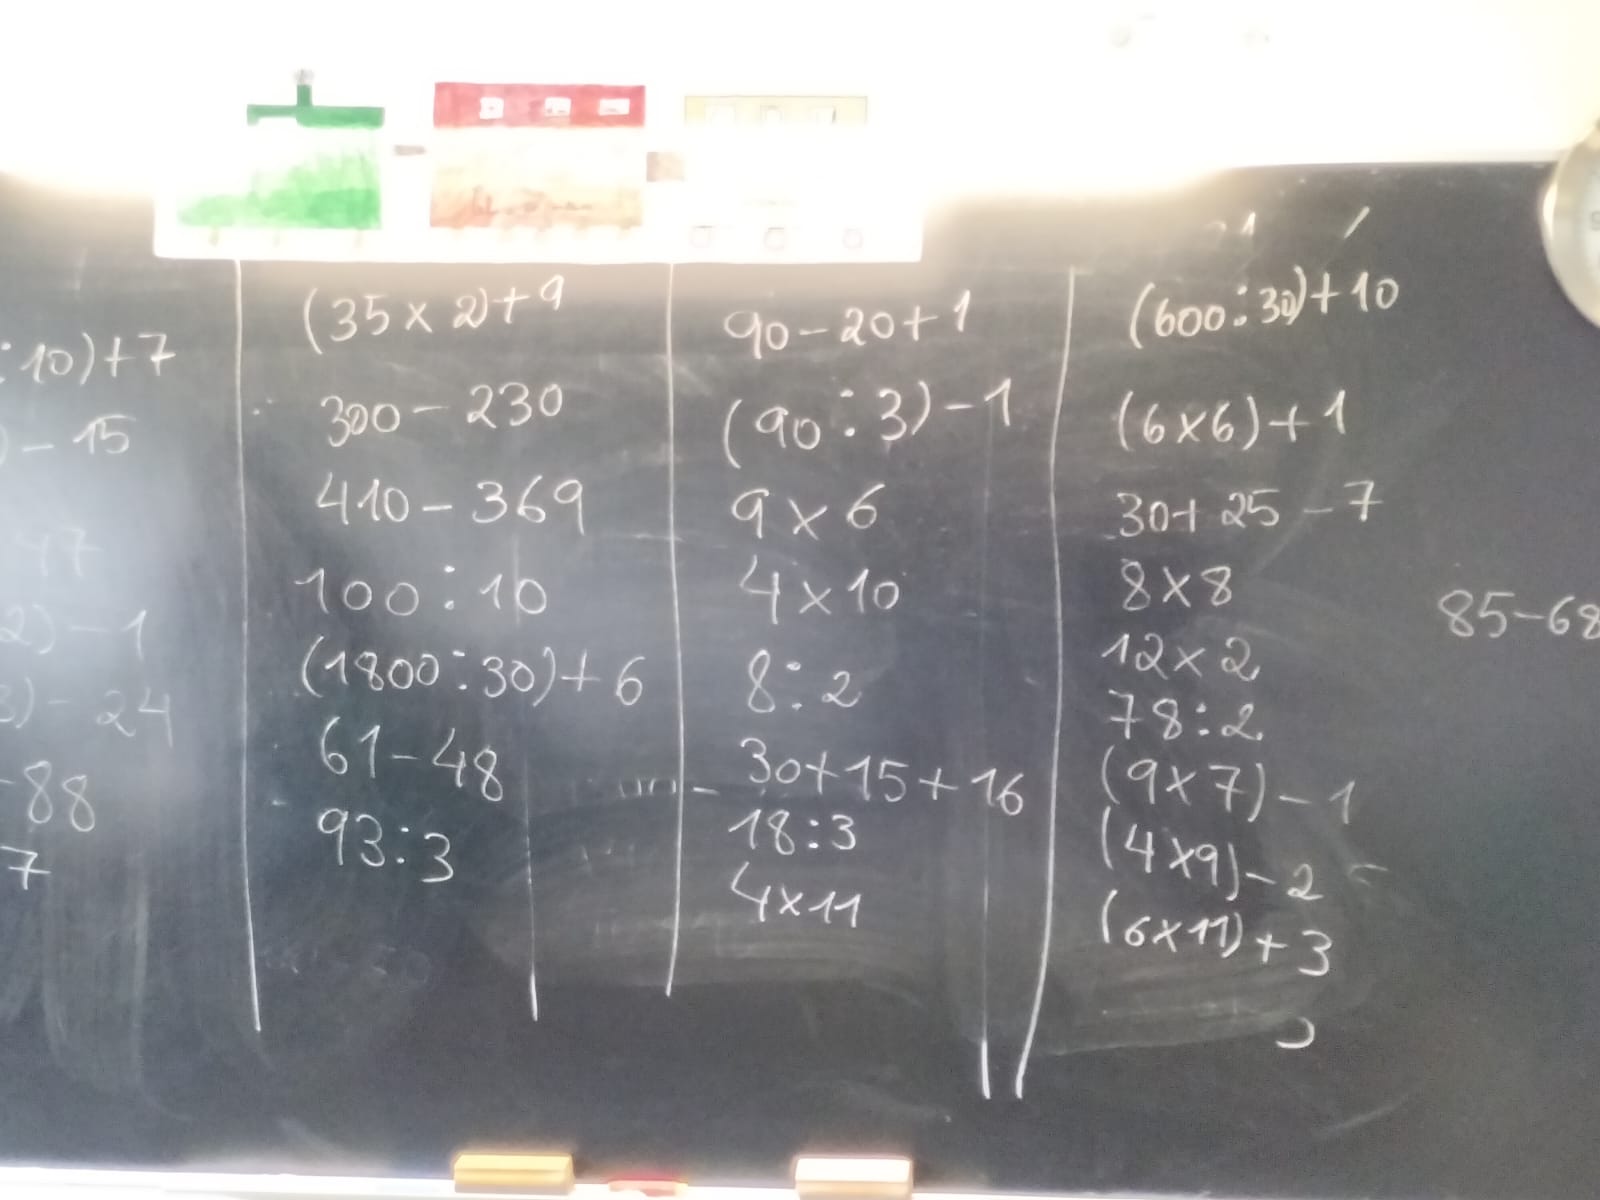 :10)+7
)-15
47
2)-1
3)-24
-88
7
(35x2)+9
300-230
410-369
100:10
(1800:30)+6
61-48
93:3
90-20+1
(90:3)-1
9x6
4x10
8:2
30+15+16
18:3
4x11
(600:30)+10
(6x6)+1
30+25-7
8x8
12x2
78:2
(9x7)-1
(4x9)-2
(6x11)+3
85-68